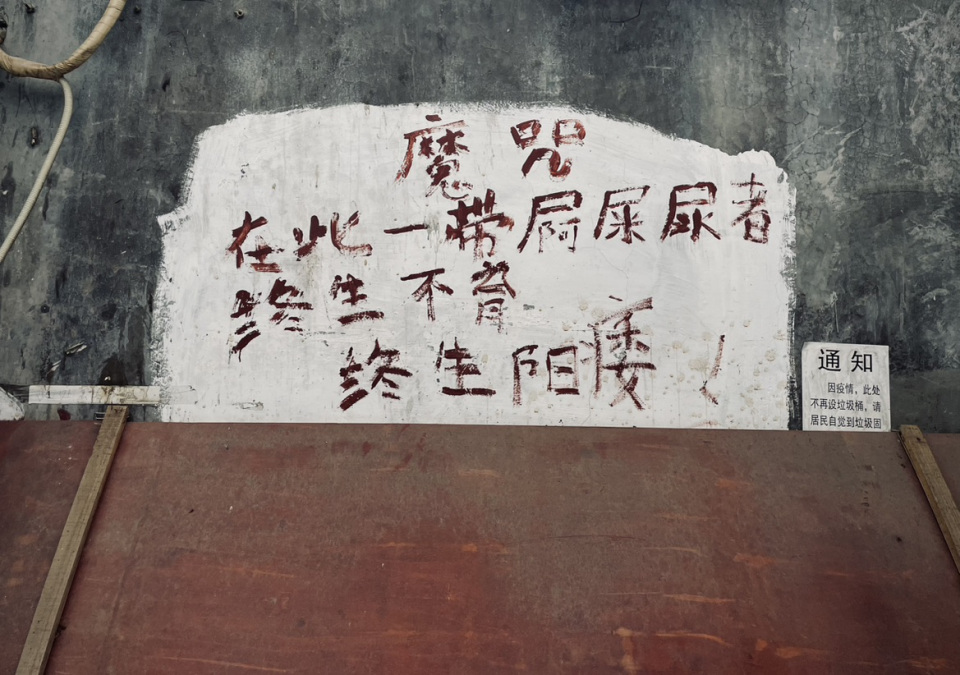 魔咒
在此一带屙屎尿者
终生不育
终生阳痿！
通知
因疫情，此处
不再设垃圾桶，请
居民自觉到垃圾固